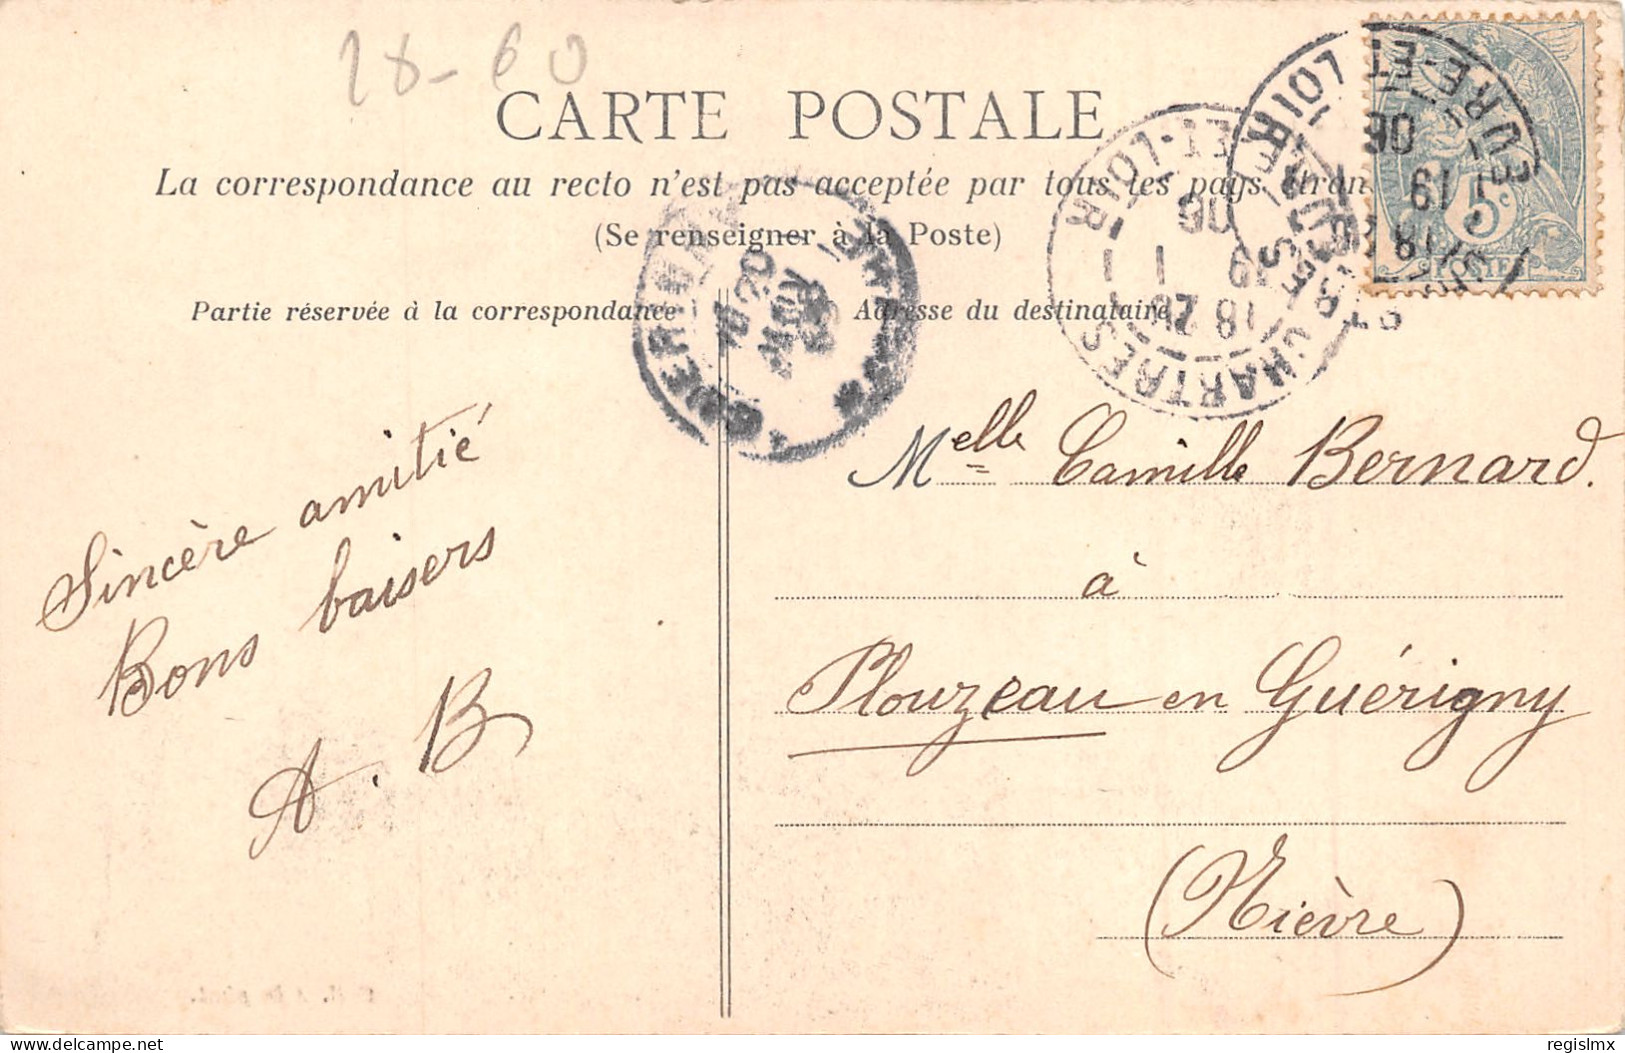 18-60
CARTE POSTALE
La correspondance au recto n'est pas acceptée par tous les pays
(Se renseigner à la Poste)
Partie réservée à la correspondance
Adresse du destinataire
CHARTRES EURE-ET-LOIR
18 20
19 1
06
CHARTRES EURE-ET-LOIR
18
19 1
06
5c
POSTES
GUERIGNY
20
Melle Camille Bernard.
à
Plouzeau en Guérigny
(Nièvre)
Sincère amitié
Bons baisers
A. B
delcampe.net
regislmx